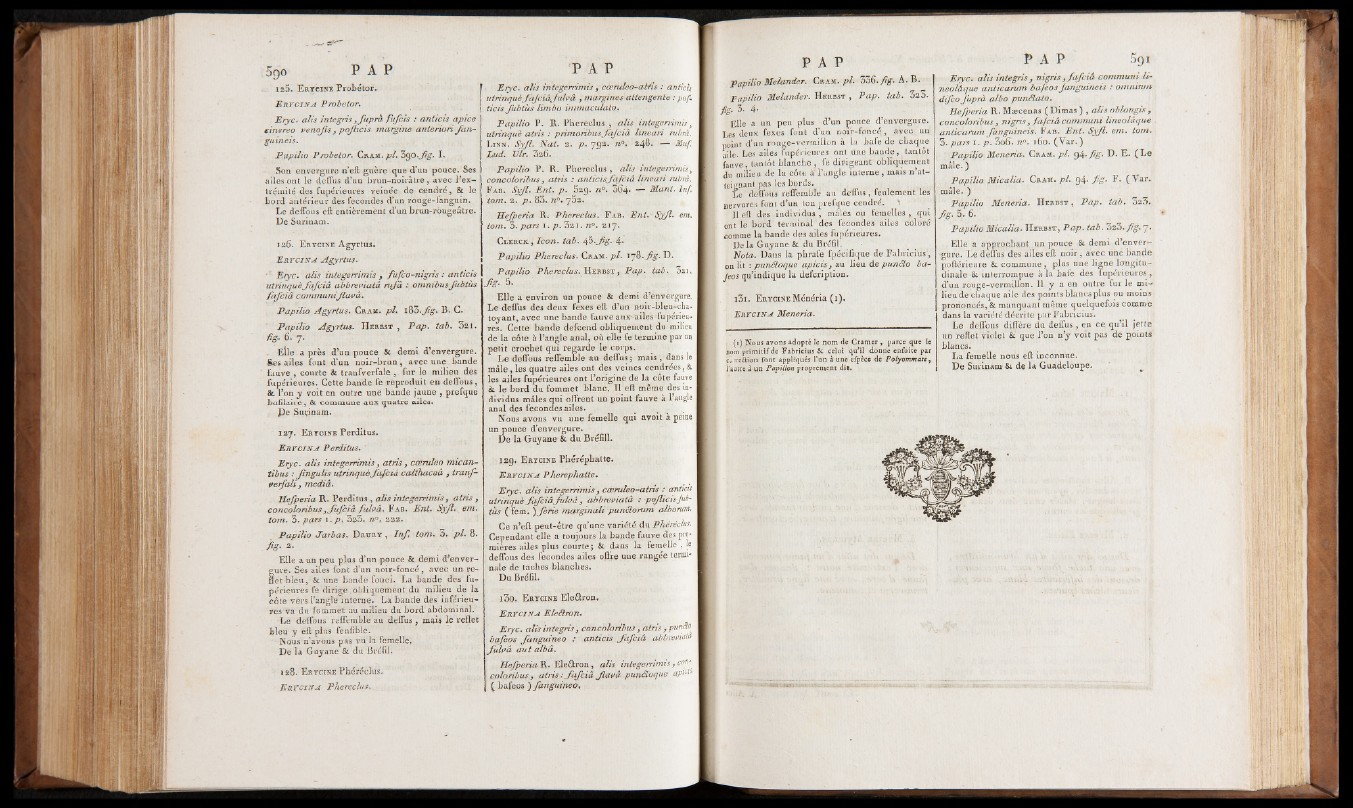 590 P A P
125. ERYCINE Probétor.
ERYCINA Probetor.
Eryc. alis integris, ſuprà fuſcis : anticis apice
cinereo venoſis, poſticis margine anteriori ſan-
guineis.
Papilio Probetor. CRAM. pl. 390. fig. I.
Son envergure n'eſt guère que d'un pouce. Ses
ailes ont le deſſus d'un brun-noirâtre, avec l'ex-
trémité des ſupérieures veinée de cendré, & le
bord antérieur des ſecondes d'un rouge-ſanguin.
Le deſſous eſt entièrement d'un brun-rougeâtre.
De Surinam.
126. ERYCINE Agyrtus.
ERYCINA Agyrtus.
Eryc. alis integerrimis, fuſco-nigris : anticis
utrinquè faſciâ abbreviatâ rufâ : omnibus ſubtùs
faſciâ communi flavâ.
Papilio Agyrtus. CRAM. pl. 183. fig. B. C.
Papilio Agyrtus. HERBST, Pap. tab. 321.
fig. 6. 7.
Elle a près d'un pouce & demi d'envergure.
Ses ailes ſont d'un noir-brun, avec une bande
fauve, courte & tranſverſale, ſur le milieu des
ſupérieures. Cette bande ſe reproduit en deſſous,
& l'on y voit en outre une bande jaune, preſque
baſilaire, & commune aux quatre ailes.
De Surinam.
127. ERYCINE Perditus.
ERYCINA Perditus.
Eryc. alis integerrimis, atris, cœruleo mican-
tibus : ſingulis utrinquè faſciâ calthaceâ, tranſ-
verſali, mediâ.
Heſperia R. Perditus, alis integerrimis, atris,
concoloribus, faſciâ fulvâ. FAB. Ent. Syſt. em.
tom. 3. pars 1. p. 323. n°. 222.
Papilio Jarbas. DRURY, Inſ. tom. 3. pl. 8.
fig. 2.
Elle a un peu plus d'un pouce & demi d'enver-
gure. Ses ailes ſont d'un noir-foncé, avec un re-
flet bleu, & une bande ſouci. La bande des ſu-
périeures ſe dirige obliquement du milieu de la
côte vers l'angle interne. La bande des inférieu-
res va du ſommet au milieu du bord abdominal.
Le deſſous reſſemble au deſſus, mais le reflet
bleu y eſt plus ſenſible.
Nous n'avons pas vu la femelle.
De la Guyane & du Bréſil.
128. ERYCINE Phéréclus.
ERYCINA Phereclus.
P A P
Eryc. alis integerrimis, cœruleo-atris : anticis
utrinquè faſciâ fulvâ, margines attengente : poſ-
ticis ſubtùs limbo immaculato.
Papilio P. R. Phereclus, alis integerrimis,
utrinquè atris : primoribus faſciâ lineari rubrâ.
LINN. Syſt. Nat. 2. p. 792. n°. 248. — Muſ.
Lud. Ulr. 326.
Papilio P. R. Phereclus, alis integerrimis,
concoloribus, atris : anticis faſciâ lineari rubrâ.
FAB. Syſt. Ent. p. 529. n°. 364. — Mant. Inſ.
tom. 2. p. 83. n°. 752.
Heſperia R. Phereclus. FAB. Ent. Syſt. em.
tom. 3. pars 1. p. 321. n°. 217.
CLERCK, Icon. tab. 43. fig. 4.
Papilio Phereclus. CRAM. pl. 178. fig. D.
Papilio Phereclus. HERBST, Pap. tab. 321.
fig. 5.
Elle a environ un pouce & demi d'envergure.
Le deſſus des deux ſexes eſt d'un noir-bleu-cha-
toyant, avec une bande fauve aux ailes ſupérieu-
res. Cette bande deſcend obliquement du milieu
de la côte à l'angle anal, où elle ſe termine par un
petit crochet qui regarde le corps.
Le deſſous reſſemble au deſſus; mais, dans le
mâle, les quatre ailes ont des veines cendrées, &
les ailes ſupérieures ont l'origine de la côte fauve
& le bord du ſommet blanc. Il eſt même des in-
dividus mâles qui offrent un point fauve à l'angle
anal des ſecondes ailes.
Nous avons vu une femelle qui avoit à peine
un pouce d'envergure.
De la Guyane & du Bréſil.
129. ERYCINE Phéréphatte.
ERYCINA Pherephatte.
Eryc. alis integerrimis, cœruleo-atris : anticis
utrinquè faſciâ fulvâ, abbreviatâ : poſticis ſub-
tùs (fem.) ſerie marginali punctorum alborum.
Ce n'eſt peut-être qu'une variété du Phéréclus.
Cependant elle a toujours la bande fauve des pre-
mières ailes plus courte; & dans la femelle, le
deſſous des ſecondes ailes offre une rangée termi-
nale de taches blanches.
Du Bréſil.
130. ERYCINE Electron.
ERYCINA Electron.
Eryc. alis integris, concoloribus, atris, puncto
baſeos ſanguineo : anticis faſciâ abbreviatâ
fulvâ aut albâ.
Heſperia R. Electron, alis integerrimis, con-
coloribus, atris : faſciâ flavâ punctoque apicis
( baſeos ) ſanguineo.
P A P
Papilio Melander. CRAM. pl. 336. fig. A. B.
Papilio Melander. HERBST, Pap. tab. 323.
fig. 3. 4.
Elle a un peu plus d'un pouce d'envergure.
Les deux ſexes ſont d'un noir-foncé, avec un
point d'un rouge-vermillon à la baſe de chaque
aile. Les ailes ſupérieures ont une bande, tantôt
fauve, tantôt blanche, ſe dirigeant obliquement
du milieu de la côte à l'angle interne, mais n'at-
teignant pas les bords.
Le deſſous reſſemble au deſſus, ſeulement les
nervures ſont d'un ton preſque cendré.
Il eſt des individus, mâles ou femelles, qui
ont le bord terminal des ſecondes ailes coloré
comme la bande des ailes ſupérieures.
De la Guyane & du Bréſil.
Nota. Dans la phraſe ſpécifique de Fabricius,
on lit : punctoque apicis, au lieu de puncto ba-
ſeos qu'indique la deſcription.
131. ERYCINE Ménéria (1).
ERYCINA Meneria.
(1) Nous avons adopté le nom de Cramer, parce que le
nom primitif de Fabricius & celui qu'il donne enſuite par
correction ſont appliqués l'un à une eſpèce de Polyommate,
l'autre à un Papillon proprement dit.
P A P 591
Eryc. alis integris, nigris, faſciâ communi li-
neolâque anticarum baſeos ſanguineis : omnium
diſco ſuprà albo punctato.
Heſperia R. Mæcenas (Dimas), alis oblongis,
concoloribus, nigris, faſciâ communi lineolâque
anticarum ſanguineis. FAB. Ent. Syſt. em. tom.
3. pars 1. p. 306. n°. 160. (Var.)
Papilio Meneria. CRAM. pl. 94. fig. D. E. (Le
mâle.)
Papilio Micalia. CRAM. pl. 94. fig. F. (Var.
mâle.)
Papilio Meneria. HERBST, Pap. tab. 323.
fig. 5. 6.
Papilio Micalia. HERBST, Pap. tab. 323. fig. 7.
Elle a approchant un pouce & demi d'enver-
gure. Le deſſus des ailes eſt noir, avec une bande
poſtérieure & commune, plus une ligne longitu-
dinale & interrompue à la baſe des ſupérieures,
d'un rouge-vermillon. Il y a en outre ſur le mi-
lieu de chaque aile des points blancs plus ou moins
prononcés, & manquant même quelquefois comme
dans la variété décrite par Fabricius.
Le deſſous diffère du deſſus, en ce qu'il jette
un reflet violet & que l'on n'y voit pas de points
blancs.
La femelle nous eſt inconnue.
De Surinam & de la Guadeloupe.